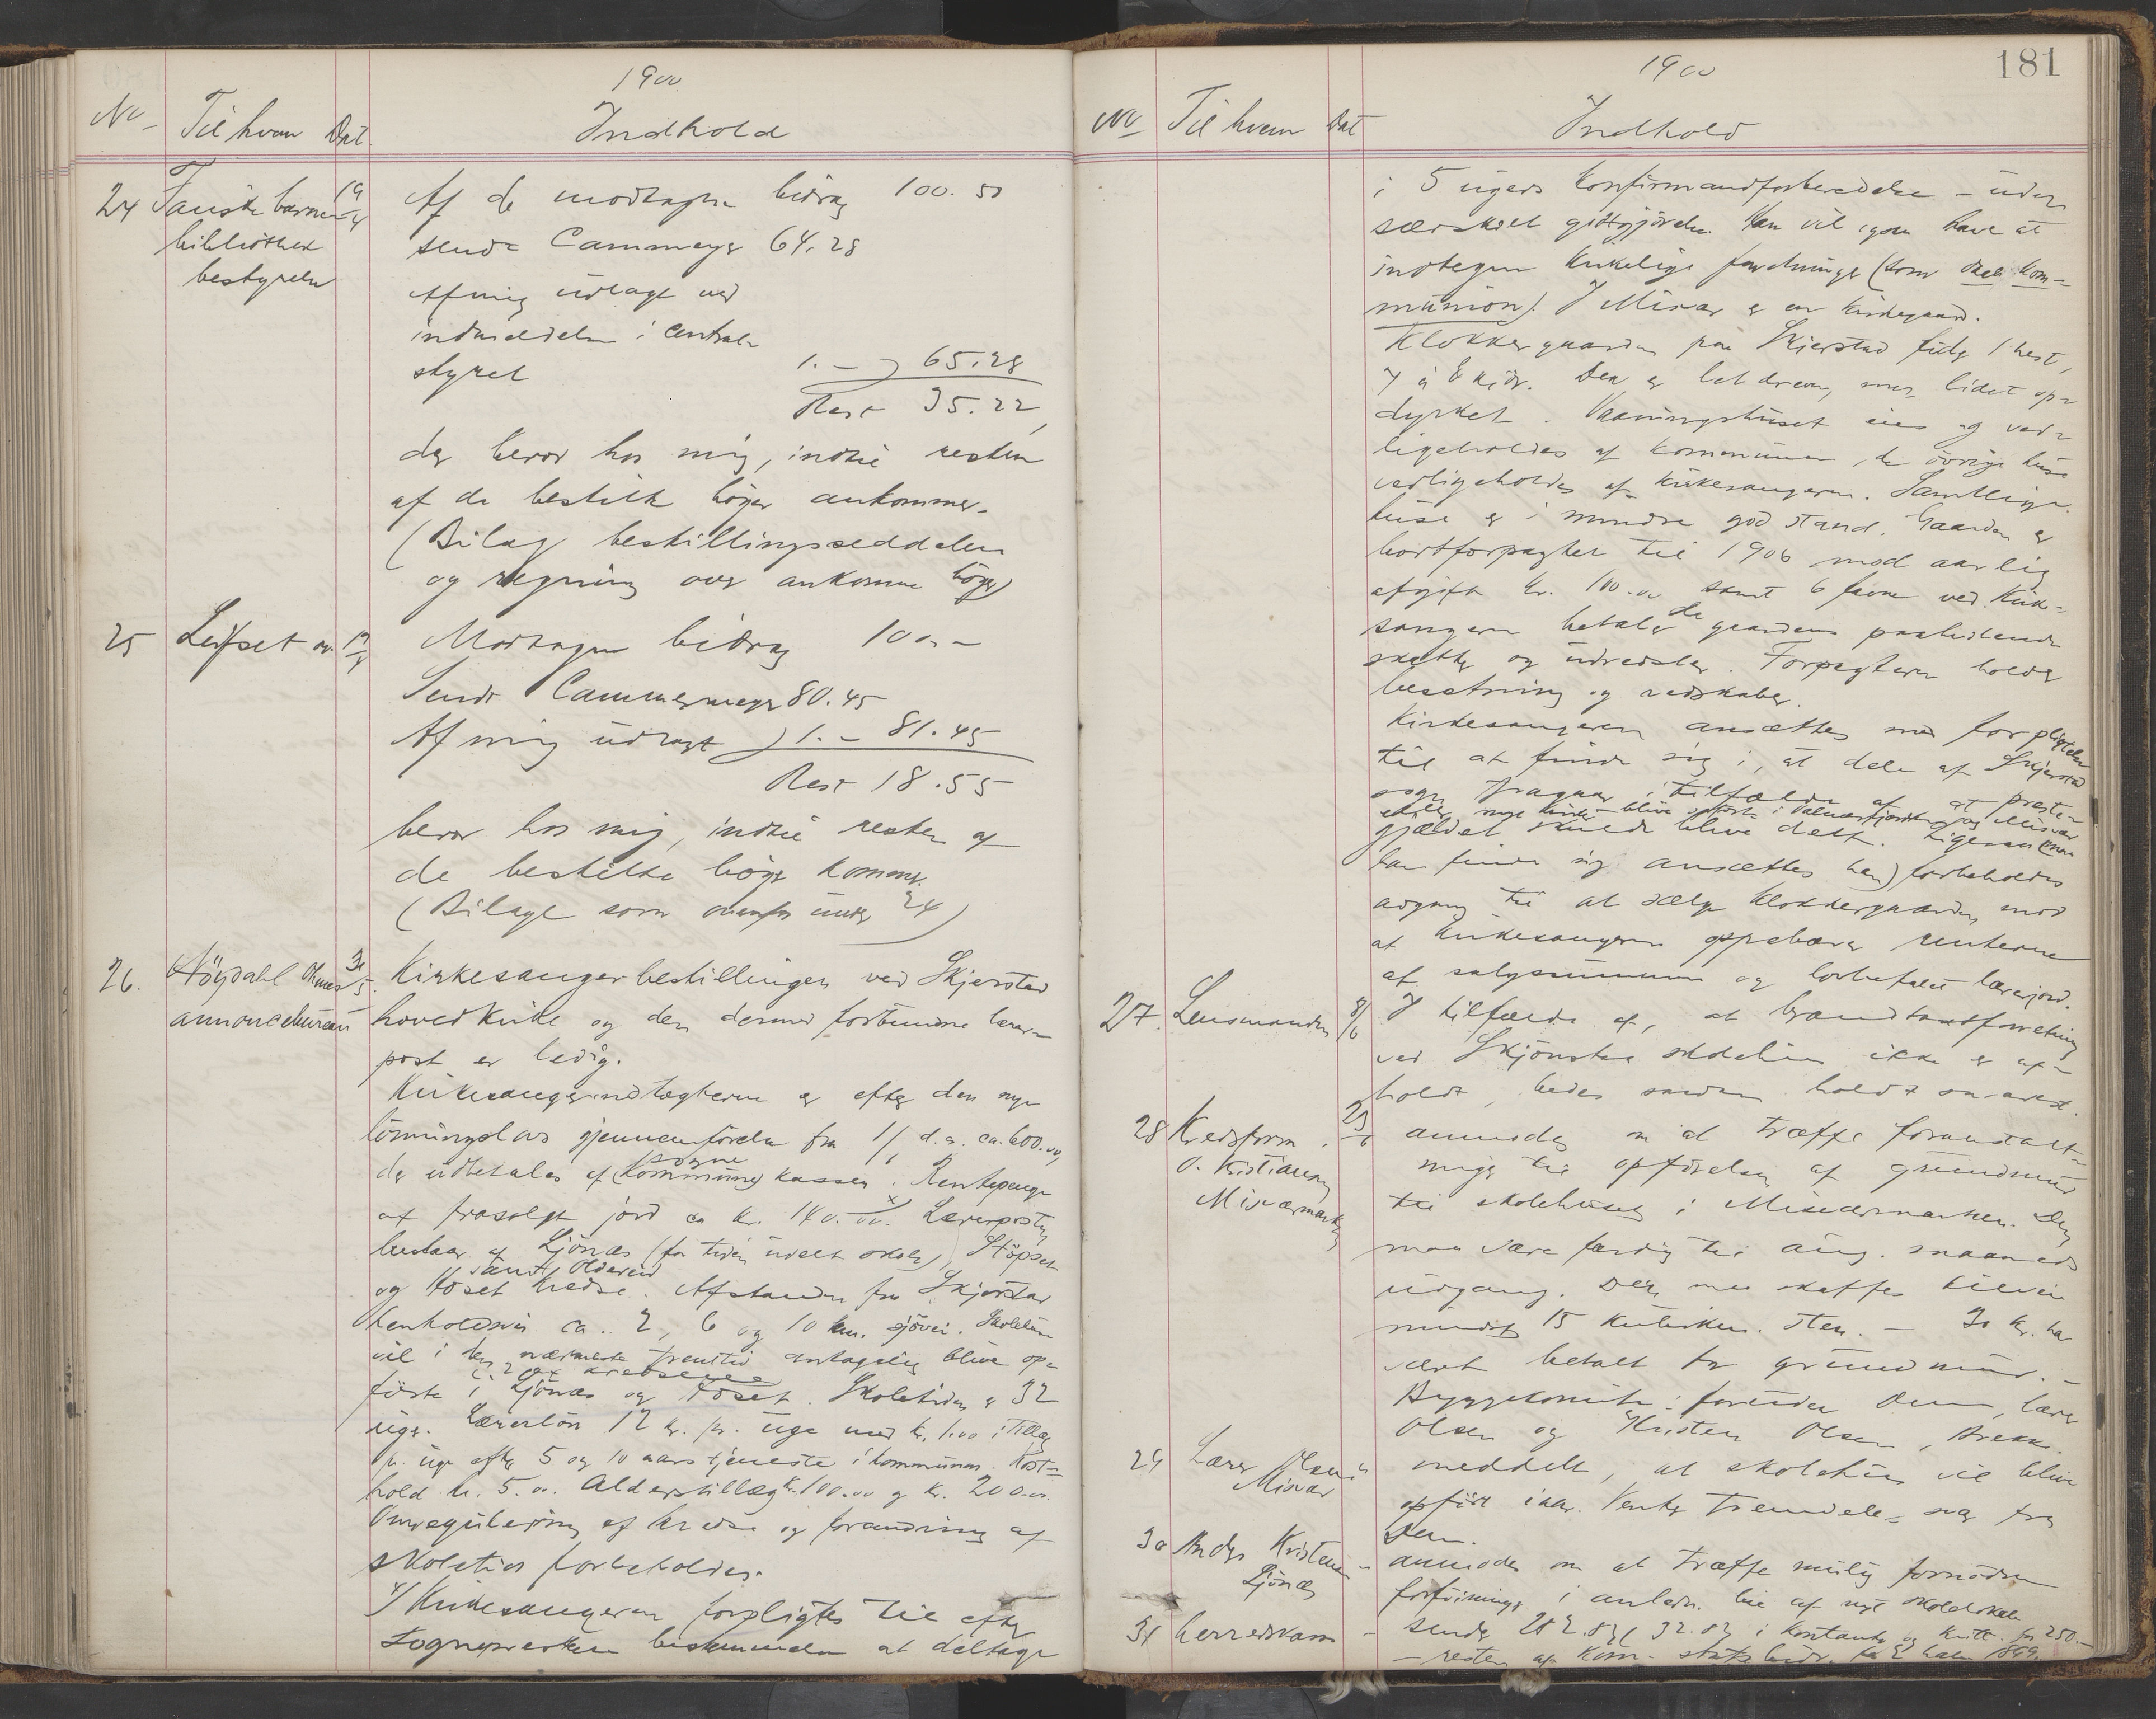 1900
No Til hvem Dat. Indhold
24 Fauske barne- 19/4 Af de modtagne bidrag 100.50
bibliothek sendt Cammermeyer 64.28
bestyrelse
Af mig udlagt ved
indmeldelse i central-
styret 1.- 65.28
Rest 35.22,
der beror hos mig, indtil resten
af de bestilte bøger ankommer.
(Bilag bestillingsseddelen
og regning over ankomne bøger)
25 Leifset 19/4 Modtagne bidrag 100.-
Sendt Cammermeyer 80.45
Af mig udlagt 1.- 81.45
Rest 18.55
beror hos mig, indtil resten af
de bestilte bøger kommer.
(Bilage som ovenfor under 24)
26. Høydahl Ohmes 30/5 Kirkesangerbestillingen ved Skjerstad
annoncebureau hovedkirke og den dermed forbundne lærer-
post er ledig.
Kirkesangerindtægterne er efter den nye
lønningslovs gjennemførelse fra 1/1 d.a. ca. 600.00,
der udbetales af sogne (kommune) kassen. Rentepenge
af frasolgt jord ca kr. 140.00. x) Lærerposten
bestaar af Ljønes (for tiden udelt skole), Støpset
og Høset samt Oldereid kredse. Afstanden fra Skjerstad
henholdsvis ca. 2, 6 og 10 km. sjøvei. Skolehus
vil i den nærmeste fremtid antagelig blive op-
ført i 2 af kredsene Ljønes og Høset. Skoletiden er 32
uger. Lærerløn 12 kr. pr. uge med kr. 1.00 i tillæg
pr. uge efter 5 og 10 aars tjeneste i kommunen. Kost-
hold kr. 5.00. Alderstillæg kr. 100.00 og kr. 200.00.
Omregulering af kredse og forandring af
skoletid forbeholdes.
x/ Kirkesangeren forpligtes til efter
sognepresten bestemmelse at deltage
1900 181
No Til hvem Dat Indhold
i 5 ugers konfirmandforberedelse - uden
særskilt godtgjørelse. Han vil igjen have at
indtegne kirkelige forretninger (som
munion). I Misvær er en kirkegaard.
Klokkergaarden paa Skjerstad føder 1 hest,
7 à 8 kjør. Den er letdreven, men lidet op-
dyrket. Vaaningshuset eies og ved-
ligeholdes af kommunen, de øvrige huse
vedligeholdes af kirkesangeren. Samtlige
huse er i mindre god stand. Gaarden er
bortforpagtet til 1906 mod aarlig
afgift kr. 100.00 samt 6 favne ved. Kirke-
sangeren betaler de gaarden paahvilende
skatter og udredsler. Forpagteren holder
besætning og redskaber.
Kirkesangeren ansættes med forpligtelse
til at finde sig i, at dele af Skjerstad
sogn fragaar i tilfælde af at preste-
eller nye kirker blive opført i Valnesfjorden og Misvær
gjældet skulde blive delt. Ligesaa (maa
han finde sig ansættes han) forbeholdes
adgang til at sælge klokkergaarden mod
at kirkesangeren oppebærer renterne
af salgssummen og lovbefalet lærerjord.
27. Lensmanden 8/6 I tilfælde af, at brandtaxtforretning
ved Skjønstaa ikke er af-
holdt, bedes saadan holdt snarest.
28 Kredsform. 23/6 anmodes om at træffe foranstalt-
O. Kristiansen ninger til opførelse af grundmur
Misværmarken til skolehuset i Misværmarken. Den
maa være færdig til aug. maaneds
udgang. Der maa skaffes tilveie
mindst 15 kubikm. sten. - 30 kr. har
været betalt for grundmur. -
Byggekomite: foruden Dem, lærer
Olsen og Kristen Olsen, Brekke.
29 Lærer Olsen " meddelt, at skolehus vil blive
Misvær opført iaar. Venter fremdeles svar fra
Dem.
30 Anders Kristensen " anmodes om at træffe mulig fornødne
Ljønes forføininger i anledn. bie af nyt skolelokale
31 herredskass. - sender 282.03, 32.03 i kontanter og kvitt. for 250.-
- resten af kom. statsbidr. for 2 halv. 1899.